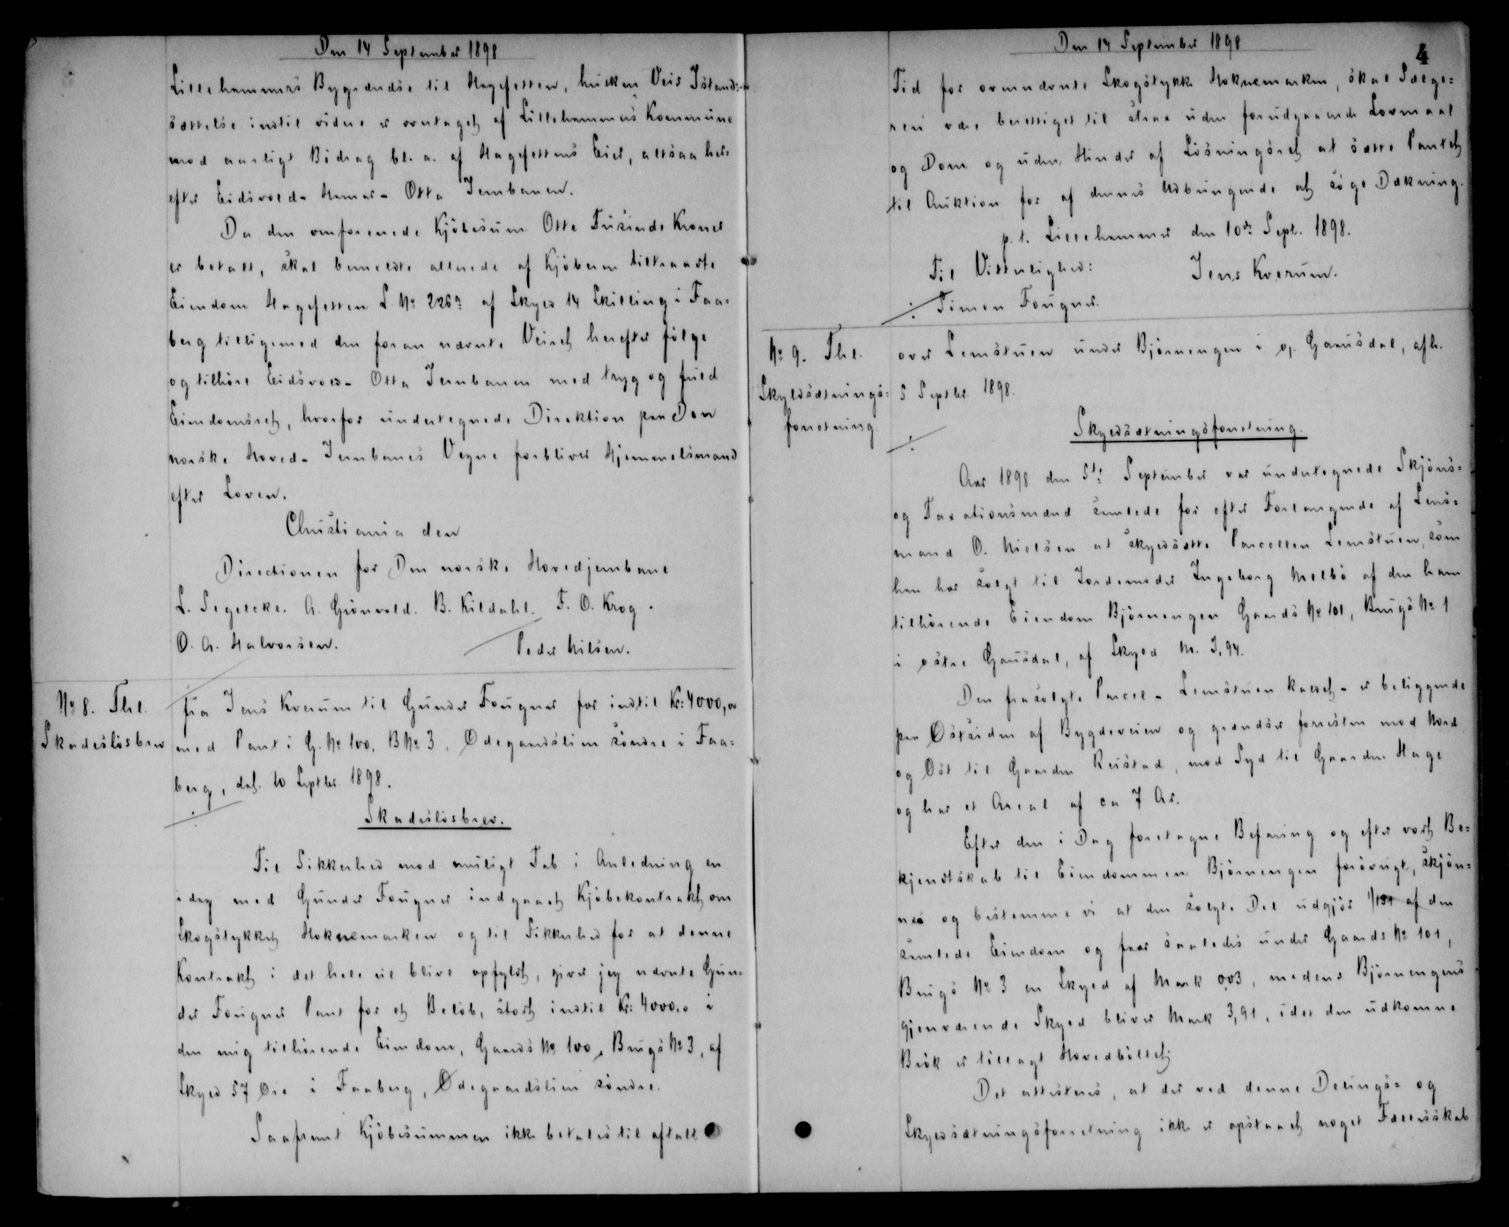 Den 14 September 1898
Lillehammers Bygrændse til Hagefetten, hvilken Veis Istand-
sættelse indtil videre er overtaget af Lillehammers Kommune
mod aarligt Bidrag bl. a. af Hagefettens Eier, altsaa her-
efter Eidsvold-Hamar-Otta Jernbanen.
Da den omforenede Kjöbesum Otte Tusinde Kroner
er betalt, skal benævnte allerede af Kjöberen tiltraadte
Eiendom Hagefetten L. No 226a af Skyld 14 Skilling i Faa-
berg tilligemed den foran nævnte Veiret herefter fölge
og tilhöre Eidsvold-Otta Jernbanen med tryg og fuld
Eiendomsret, hvorfor undertegnede Direktion paa Den
norske Hoved-Jernbanes Vegne forbliver Hjemmelsmand
efter Loven.
Christiania den
Directionen for Den norske Hovedjernbane
L. Segelcke. A. Grönvold. B. Kildahl. F. O. Krog.
O. A. Halvorsen. Peder Nilsen.
No 8. Thl.
Skadeslösbrev
fra Jens Kverum til Gunder Fougner for indtil Kr: 4000,00
med Pant i G. No 100, B No 3, Ödegaardslien söndre i Faa-
berg, dat. 10 Septbr. 1898.
Skadeslösbrev.
Til Sikkerhed mod muligt Tab i Anledning en
idag med Gunder Fougner indgaaet Kjöbekontrakt om
Skogstykket Hoknemarken og til Sikkerhed for at denne
Kontrakt i det hele vil blive opfyldt, giver jeg nævnte Gun-
der Fougner Pant for et Belöb, stort indtil Kr: 4000,00 i
den mig tilhörende Eiendom, Gaards No 100, Brugs No 3, af
Skyld 57 Öre i Faaberg, Ödegaardslien söndre.
Saafremt Kjöbesummen ikke betales til aftalt
Den 14 September 1898
4
Tid for ovennævnte Skogstykke Hoknemarken, skal Sælge-
ren være berettiget til strax uden forudgaaende Lovmaal
og Dom og uden Hinder af Lösningsret at sætte Pantet
til Auktion for af dennes Udbringende at söge Dækning.
p. t. Lillehammer den 10de Sept. 1898.
Til Vitterlighed: Jens Kverum.
Simen Fougner.
No 9. Thl.
Skyldsætnings-
forretning.
over Lemstuen under Björnengen i ö. Gausdal, afh.
5 Septbr. 1898.
Skyldsætningsforretning.
Aar 1898 den 5te September var undertegnede Skjöns-
og Taxationsmænd samlede for efter Forlangende af Lens-
mand O. Nielsen at skyldsætte Parcellen Lemstuen, som
han har solgt til Jordemoder Ingeborg Melbö af den ham
tilhörende Eiendom Björnengen Gaards No 101, Brugs No 1
i östre Gausdal, af Skyld M. 3,94.
Den frasolgte Parcel - Lemstuen kaldet - er beliggende
paa Östsiden af Bygdeveien og grændser forresten mod Nord
og Öst til Gaarden Reistad, mod Syd til Gaarden Hage
og har et Areal af ca 7 Ar.
Efter den i Dag foretagne Befaring og efter vort Be-
kjendtskab til Eiendommen Björnengen forövrigt, skjön-
nes og bestemme vi at den solgte Del udgjör 1/131 af den
samlede Eiendom og faar saaledes under Gaards No 101,
Brugs No 3 en Skyld af Mark 0,03, medens Björnengens
gjenværende Skyld bliver Mark 3,91, idet den udkomne
Brök er tillagt Hovedböllet.
Det attesteres, at der ved denne Delings- og
Skyldsætningsforretning ikke er opstaaet noget Fællesskab